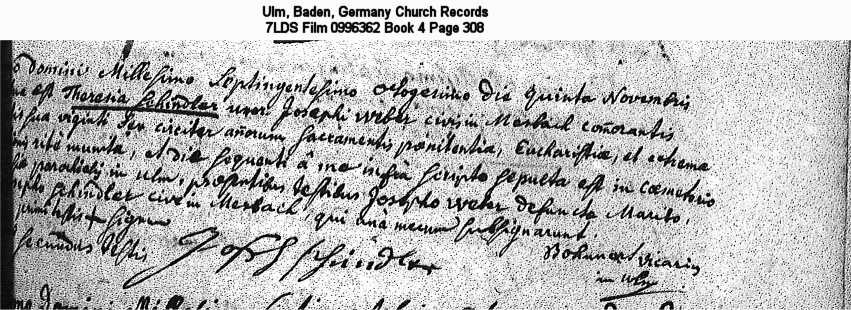 Ulm, Baden, Germany Church Records
7LDS Film 0996362 Book 4 Page 308
Domini Millesimo Septingentesimo octogesimo die quinta Novembris
est Theresia Schindler uxor Josephi Weber civis in Mesbach coñorantis
sua viginti sex circiter añorum sacramentis pœnitentia, Eucharistia, et extrema
rite munita, et die sequenti à me infra scripto sepulta est in cœmeterio
in Ulm, præsentibus testibus Josepho Weber defunctæ Marito,
Schindler cive in Mesbach, qui una mecum subsignarunt.
primi testis + signum
secundus testis Joseph Schindler vicarius
in Ulm